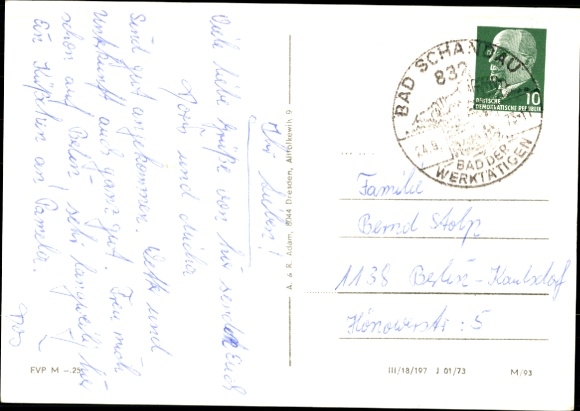 Ihr Lieben!
Viele liebe Grüße von hier senden Euch
Doris und Micha
Sind gut angekommen. Wetter und
Unterkunft auch ganz gut. Freu mich
schon auf Berlin - sehr langweilig hier
Ein Küßchen an Pamela.
FVP M -.25
A. & R. Adam, 8044 Dresden, Altlockwitz 9
BAD SCHANDAU
832
BAD DER
WERKTÄTIGEN
10
DEUTSCHE
DEMOKRATISCHE REPUBLIK
Familie
Bernd Stolp
1138 Berlin-Kaulsdorf
Hönowerstr: 5
III/18/197 J 01/73
M/93